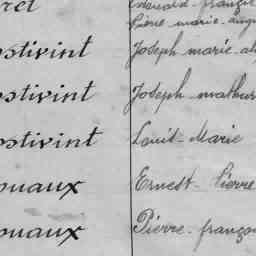 ret Edouard - françois
Pierre - marie - augu
ostivint Joseph - marie - al
ostivint Joseph mathur
ostivint Louis - Marie
ouaux Ernest - Pierre
ouaux Pierre - franço